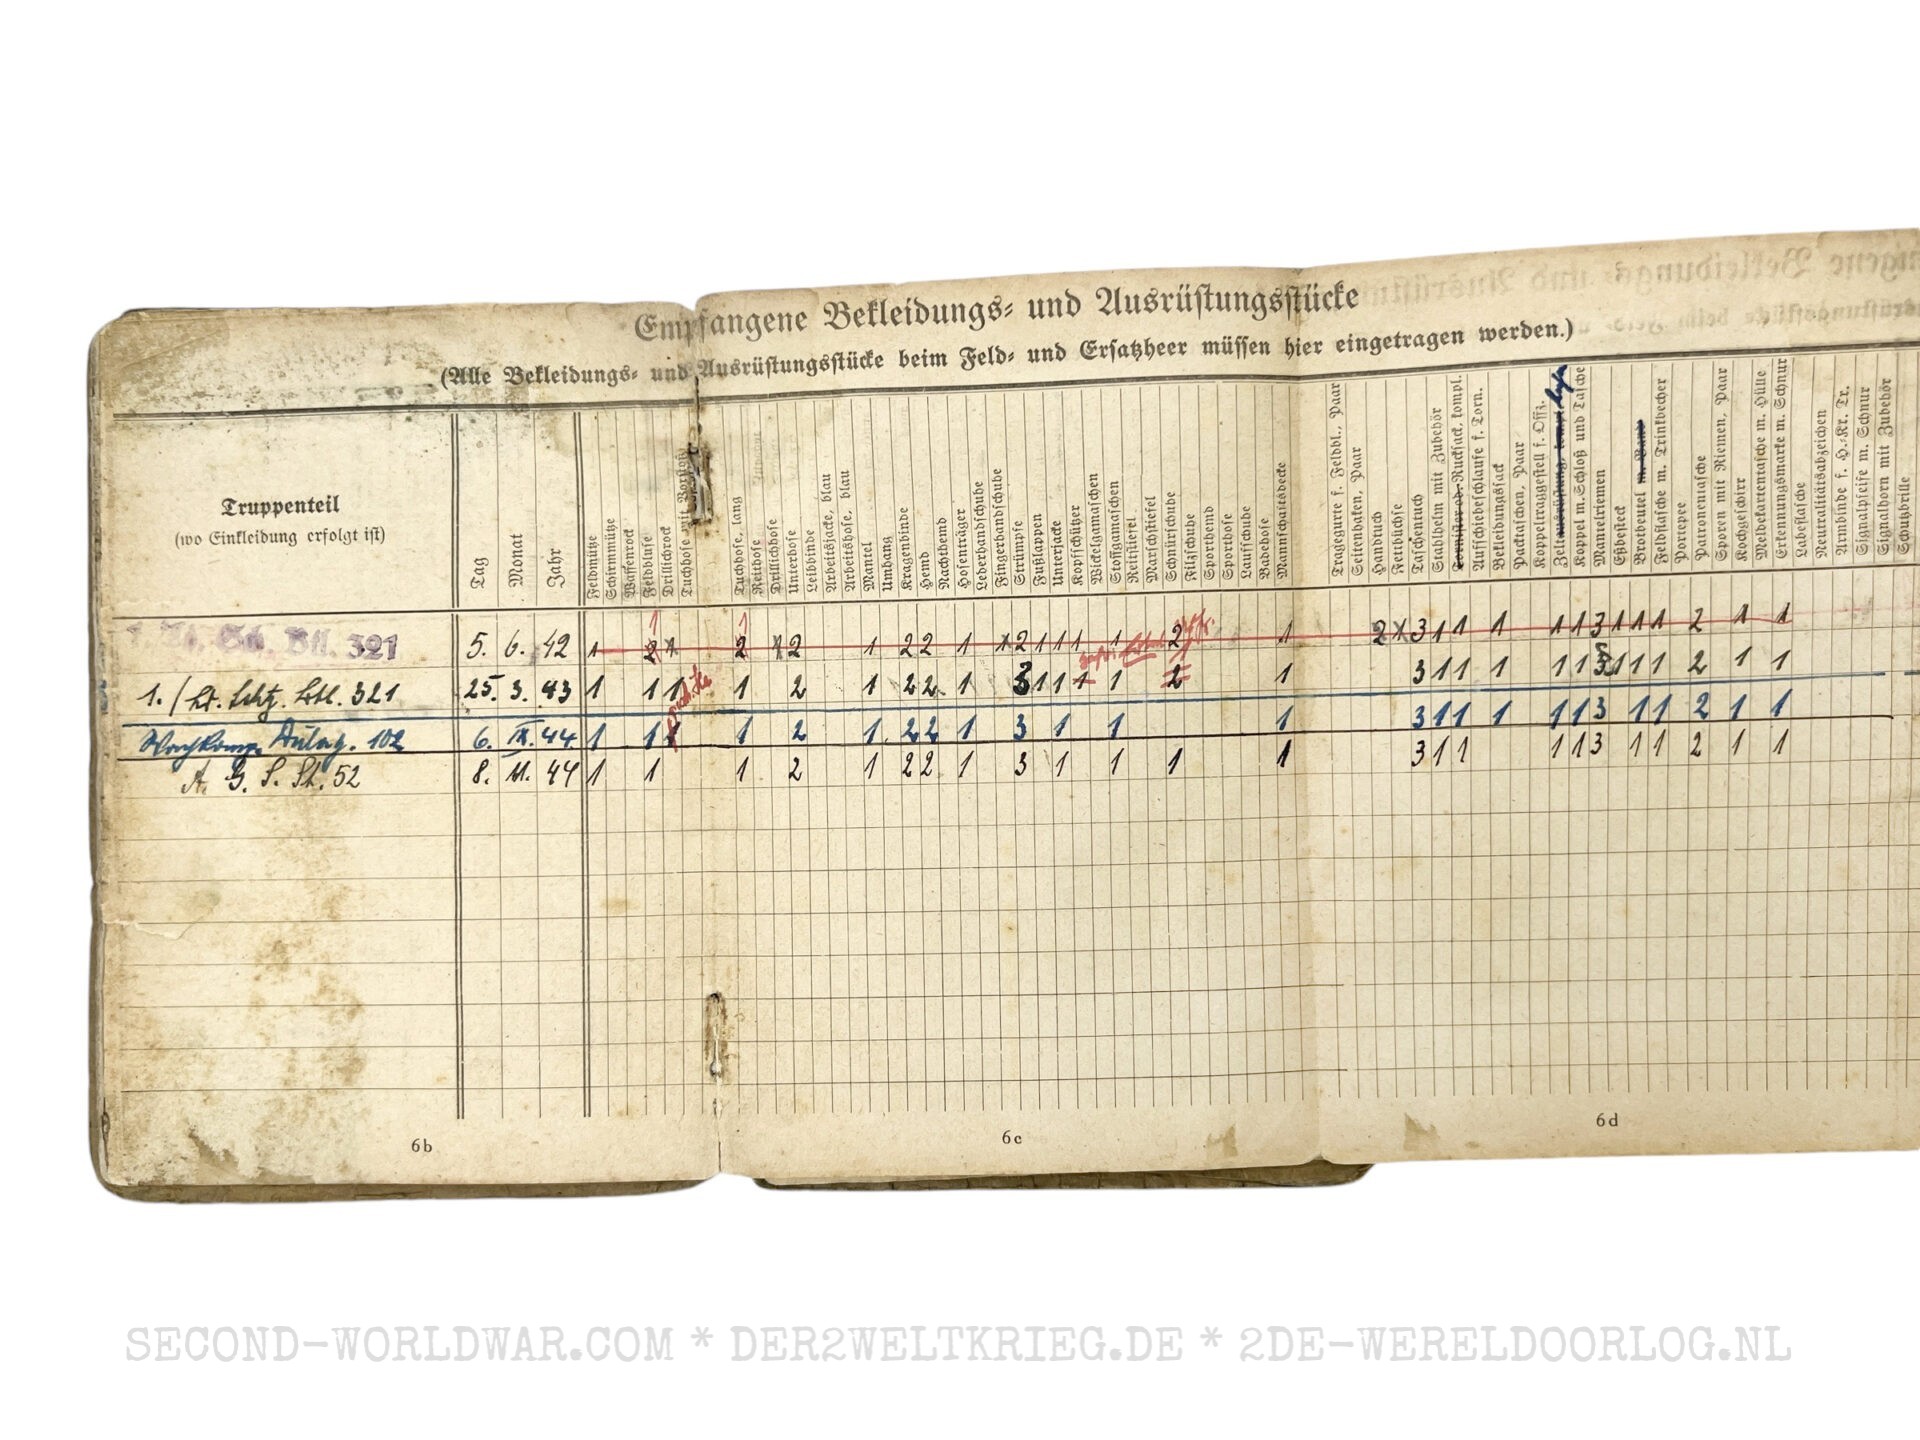 Empfangene Bekleidungs- und Ausrüstungsstücke
(Alle Bekleidungs- und Ausrüstungsstücke beim Feld- und Ersatzheer müssen hier eingetragen werden.)
Truppenteil
(wo Einkleidung erfolgt ist)
Tag
Monat
Jahr
Feldmütze
Schirmmütze
Waffenrock
Feldbluse
Drillichrock
Tuchhose mit Vorstoß
Tuchhose, lang
Reithose
Drillichhose
Unterhose
Leibbinde
Arbeitsjacke, blau
Arbeitshose, blau
Mantel
Umhang
Kragenbinde
Hemd
Nachthemd
Hosenträger
Lederhandschuhe
Fingerhandschuhe
Strümpfe
Fußlappen
Unterjacke
Kopfschützer
Wickelgamaschen
Stoffgamaschen
Reitstiefel
Marschstiefel
Schnürschuhe
Filzschuhe
Sporthemd
Sporthose
Laufschuhe
Badehose
Mannschaftsdecke
Tragegurte f. Feldbl., Paar
Seitenhaken, Paar
Handtuch
Fettbüchse
Taschentuch
Stahlhelm mit Zubehör
Tornister od. Rucksack, kompl.
Aufschiebeschlaufe f. Torn.
Bekleidungssack
Packtaschen, Paar
Koppeltraggestell f. Offz.
Zeltausrüstung, kompl.
Koppel m. Schloß und Tasche
Mantelriemen
Eßbesteck
Brotbeutel m. Band
Feldflasche m. Trinkbecher
Portepee
Patronentasche
Sporen mit Riemen, Paar
Kochgeschirr
Meldekartentasche m. Hülle
Erkennungsmarke m. Schnur
Labeflasche
Neutralitätsabzeichen
Armbinde f. H.-Kr. Tr.
Signalpfeife m. Schnur
Signalhorn mit Zubehör
Schutzbrille
Btl. 321 5. 6. 42 1 2 1 2 2 1 2 2 1 2 1 1 1 1 2 1 2 3 1 1 1 1 1 3 1 1 1 2 1 1
1. / Ld. Schtz. Btl. 321 25. 3. 43 1 1 1 1 2 1 2 2 1 3 1 1 1 1 2 1 3 1 1 1 1 1 3 1 1 1 2 1 1
102 6. IX. 44 1 1 1 2 1 2 2 1 3 1 1 1 3 1 1 1 1 1 3 1 1 2 1 1
A. G. S. St. 52 8. 11. 44 1 1 1 2 1 2 2 1 3 1 1 1 1 3 1 1 1 1 3 1 1 2 1 1
6b
6c
6d
SECOND-WORLDWAR.COM * DER2WELTKRIEG.DE * 2DE-WERELDOORLOG.NL